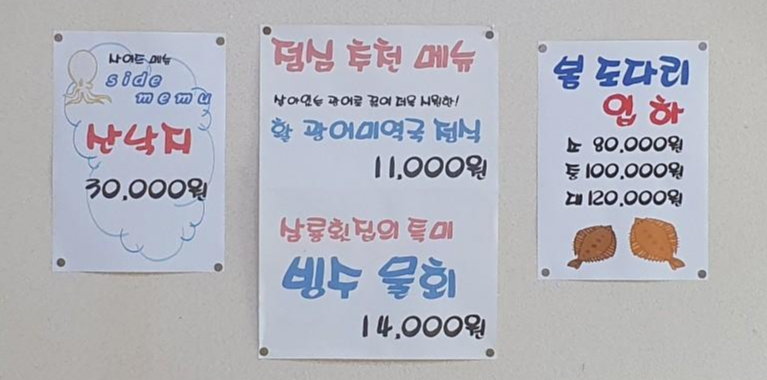 사이드 메뉴
side
memu
산낙지
30,000원
점심 추천 메뉴
살아있는 광어로 끓여 더욱 시원한!
활 광어미역국 정식
11,000원
삼룡횟집의 특미
빙수 물회
14,000원
봄 도다리
입 하
소 80,000원
중 100,000원
대 120,000원